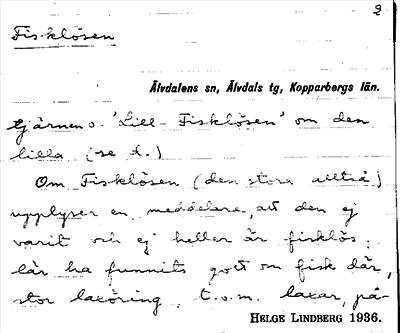 2
Fisklösen
Älvdalens sn, Älvdals tg, Kopparbergs län.
tjärnen o. 'Lill-Fisklösen' om den
lilla (se d.)
Om Fisklösen (den stora alltså)
upplyser en meddelare, att den ej
varit och ej heller är fisklös;
lär ha funnits gott om fisk där,
stor laxöring, t.o.m. laxar, på-
HELGE LINDBERG 1936.